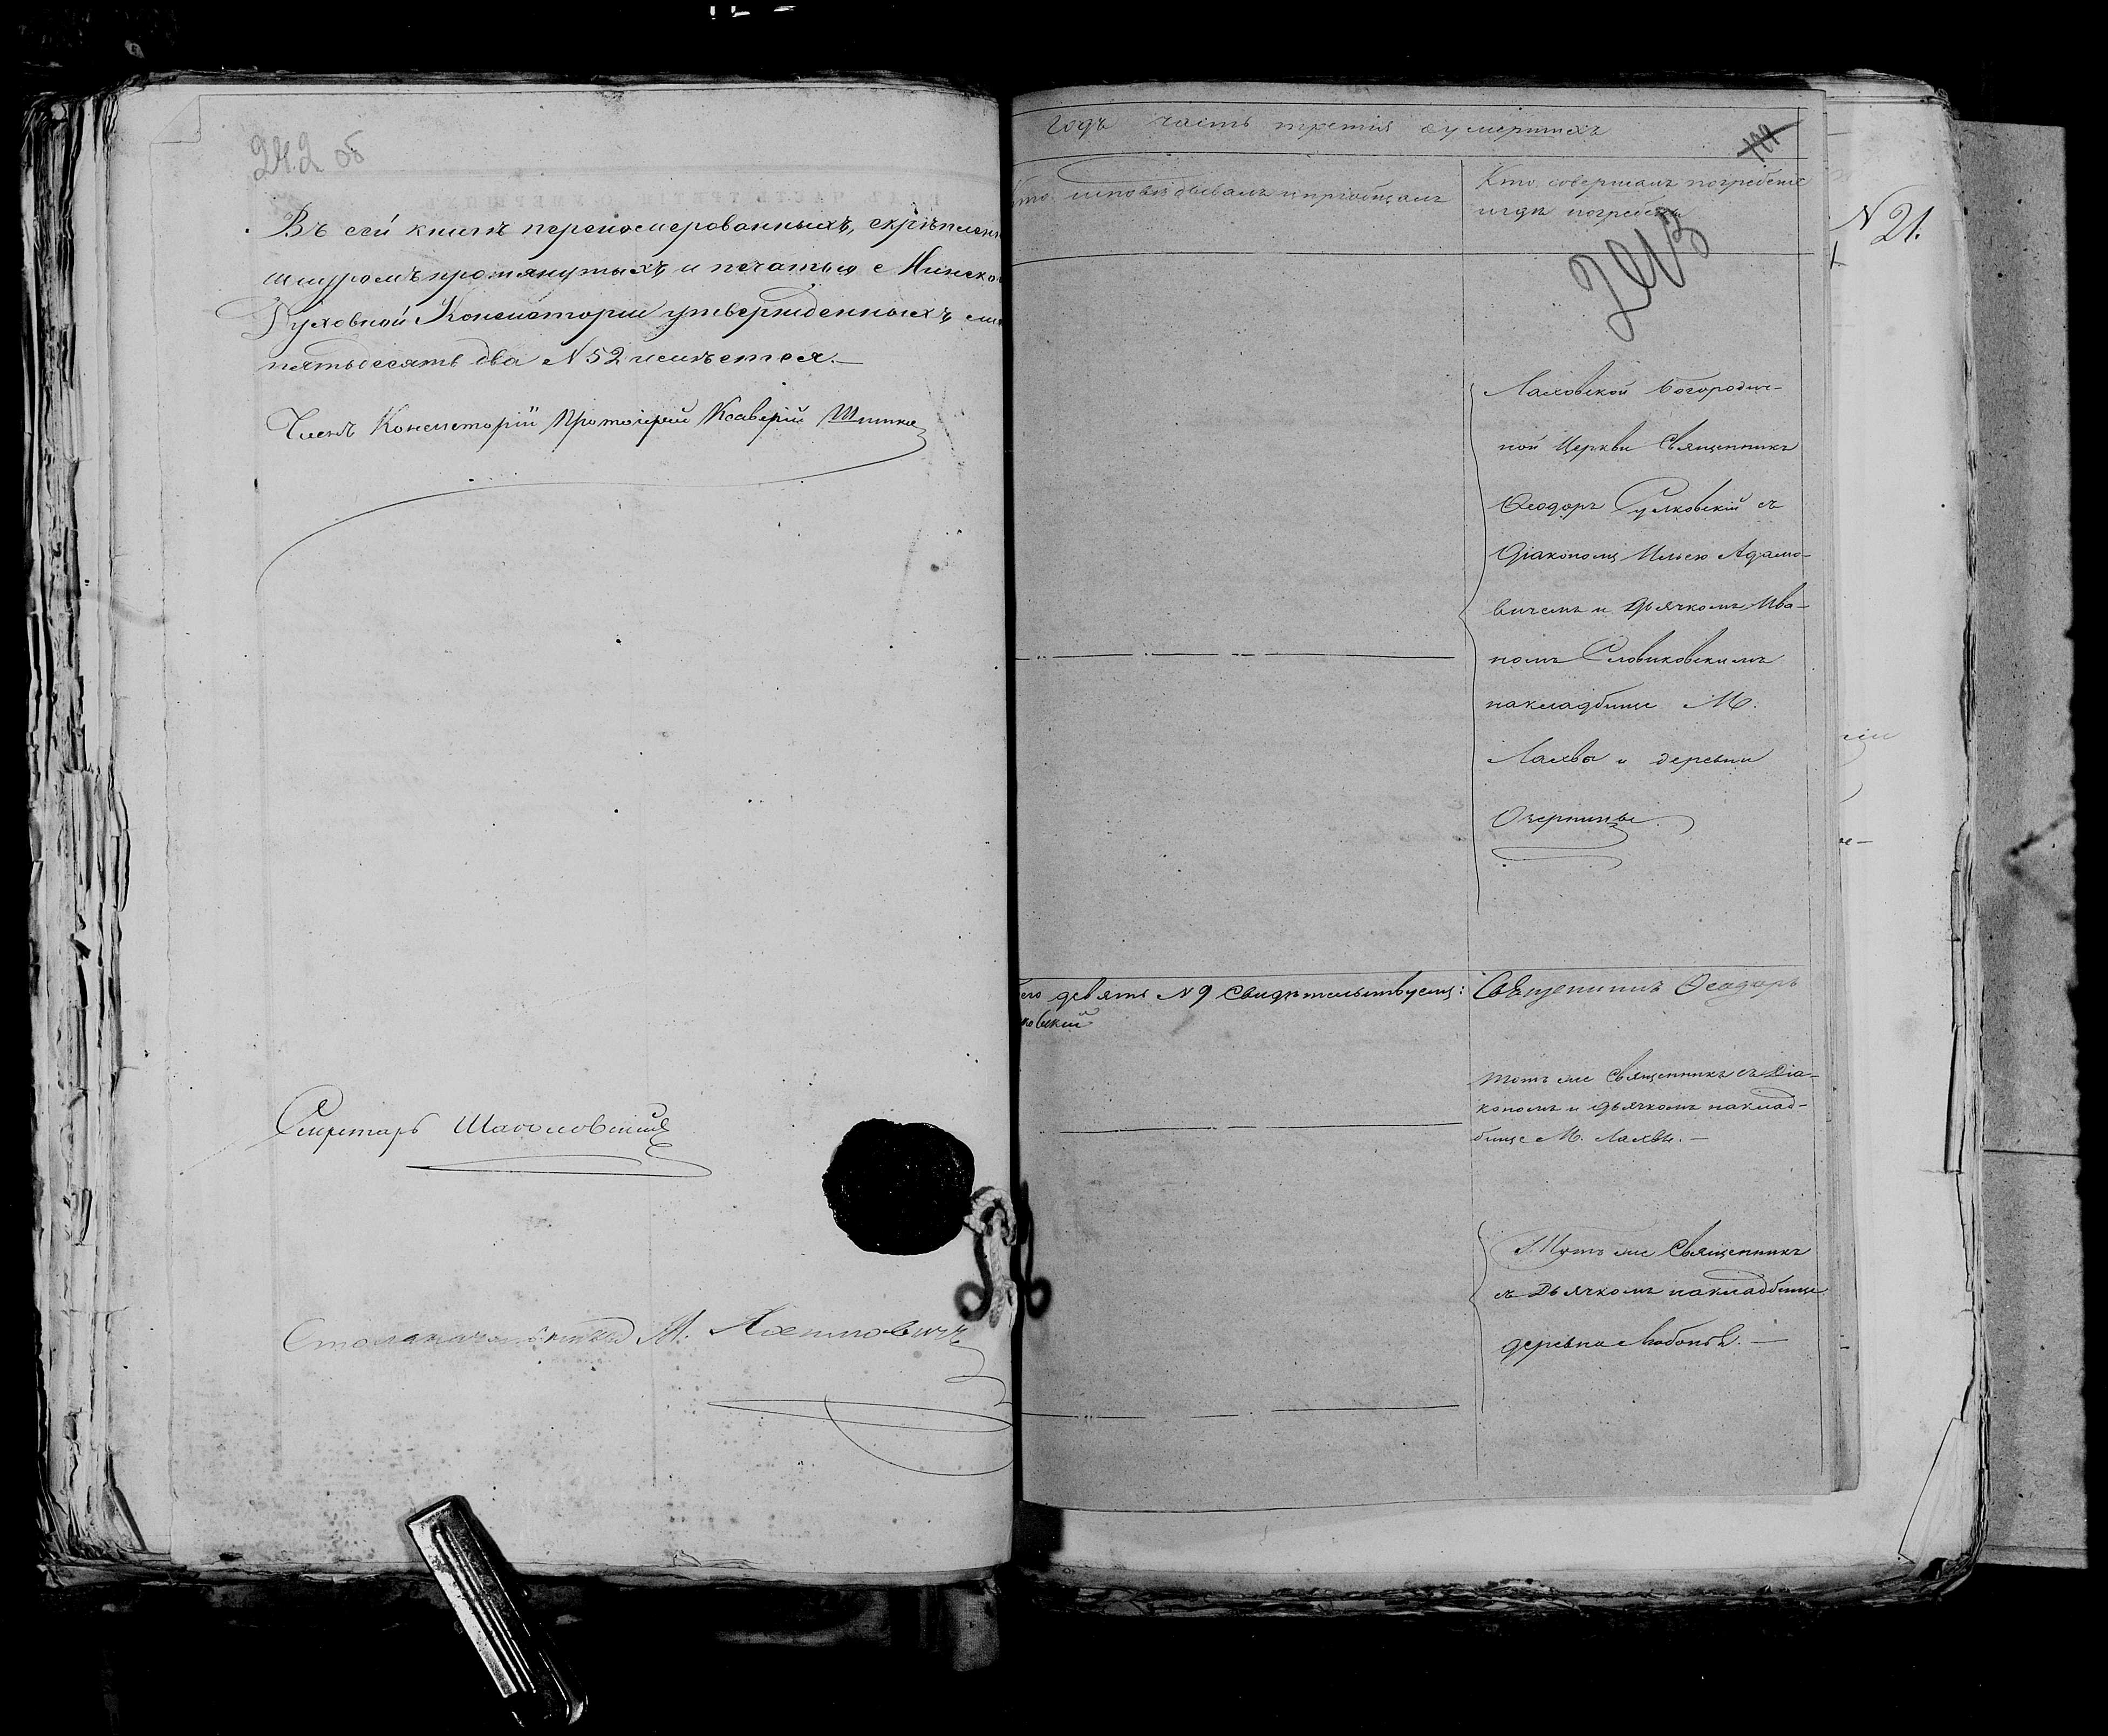 242 об
Въ сей книгѣ перенумерованныхъ, скрѣплен
шнуромъ протянутыхъ и печатью Минско
Духовной Консисторіи утвержденныхъ
пятьдесятъ два N 52 имѣется.—
Членъ Консисторіи Протоіерей Ксаверій
Секретарь
Столоначальникъ М.
годъ часть третія оумершихъ
Кто исповѣдывалъ ипріобщалъ
Кто совершалъ погребеніе
игдѣ погребены
243
N 21.
Лаховской Богородич-
ной Церкви Священникъ
Ѳеодоръ Сулковскій съ
Діакономъ Ильею Адамо-
вичемъ и Дьячкомъ Ива-
номъ Словиковскимъ
накладбище М.
Лахвы и деревни
его девять N 9 Свидѣтельствуемъ: Священникъ Ѳеодоръ
ковскій
Тотъ же Священникъ съ Діа-
кономъ и Дьячкомъ наклад-
бище М. Лахвѣ.—
Тотъ же Священникъ
съ Дьячкомъ накладбище
деревни